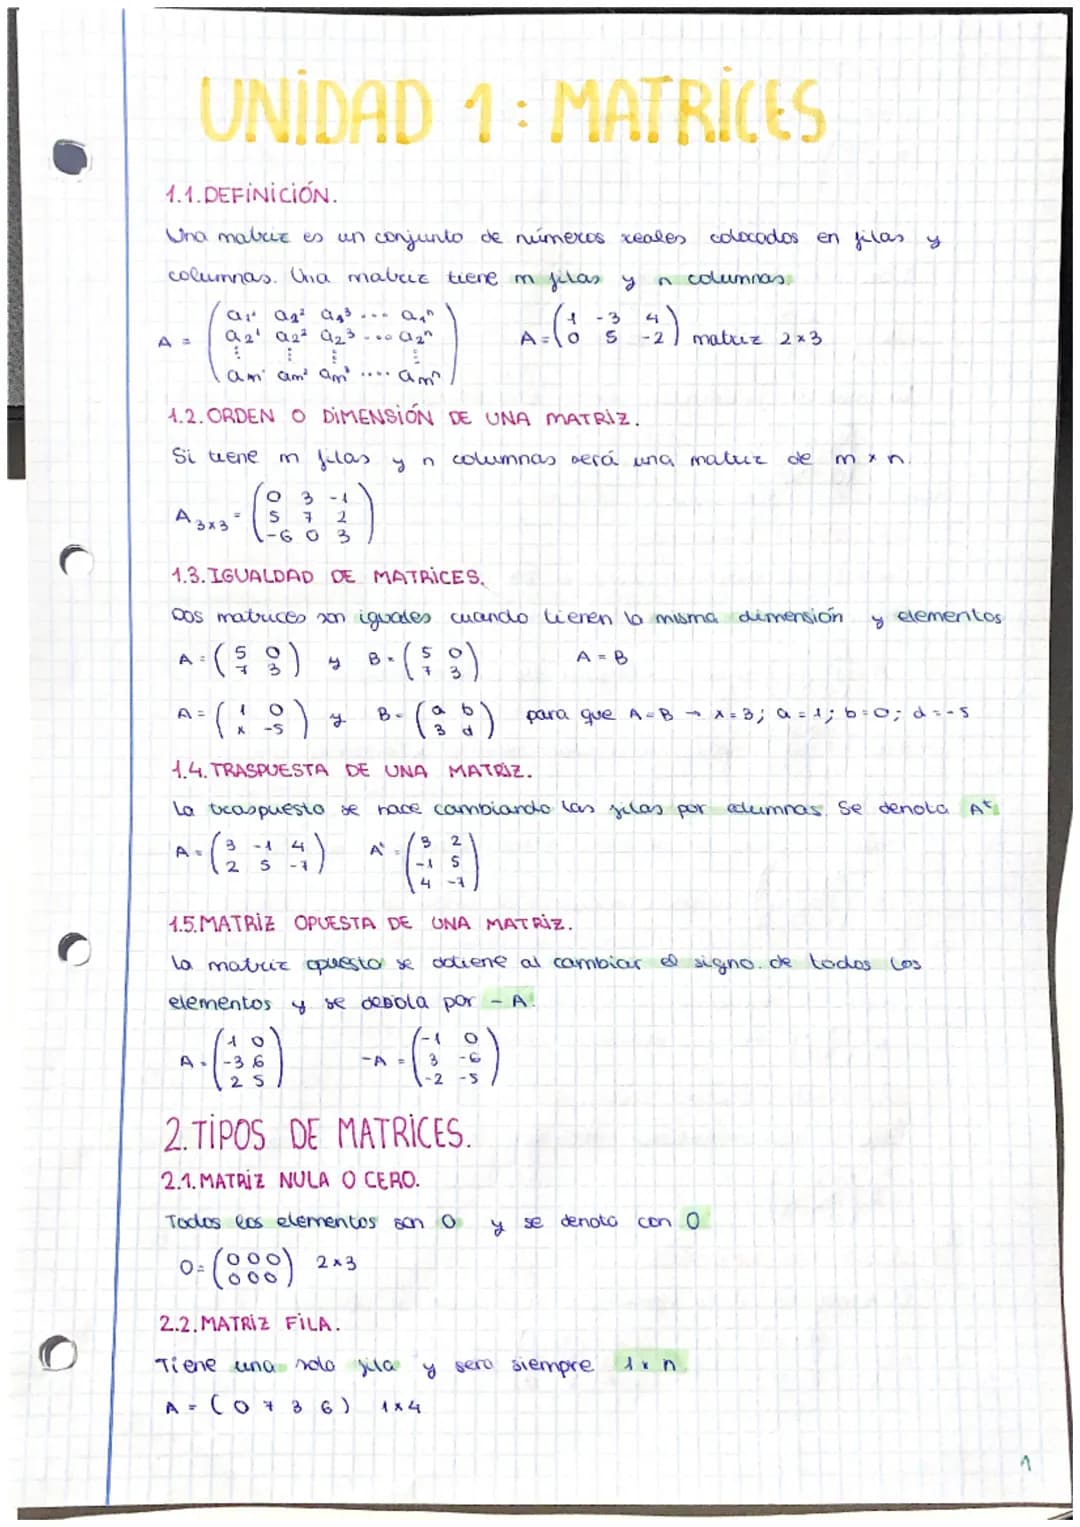 UNIDAD 1: MATRICES
1.1. DEFINICIÓN.
Una matriz es un conjunto de números reales colocados en filas y
columnas. Una matriz tiene m filas y n columnas.
A = ( a₁¹ a₁² a₁³ ... a₁ⁿ
a₂¹ a₂² a₂³ ... a₂ⁿ
⋮ ⋮ ⋮ ⋮
am¹ am² am³ .... amⁿ )
A = ( 1 -3 4
0 5 -2 ) matriz 2x3
1.2. ORDEN O DIMENSIÓN DE UNA MATRIZ.
Si tiene m filas y n columnas será una matriz de m x n.
A 3x3 = ( 0 3 -1
5 7 2
-6 0 3 )
1.3. IGUALDAD DE MATRICES.
Dos matrices son iguales cuando tienen la misma dimensión y elementos
A = ( 5 0
7 3 ) y B = ( 5 0
7 3 ) A = B
A = ( 1 0
x -5 ) y B = ( a b
3 d ) para que A=B → x=3; a=1; b=0; d=-5
1.4. TRASPUESTA DE UNA MATRIZ.
La traspuesta se hace cambiando las filas por columnas. Se denota Aᵗ
A = ( 3 -1 4
2 5 -7 ) Aᵗ = ( 3 2
-1 5
4 -7 )
1.5. MATRIZ OPUESTA DE UNA MATRIZ.
La matriz opuesta se obtiene al cambiar el signo de todos los
elementos y se denota por -A.
A = ( 1 0
-3 6
2 5 )
-A = ( -1 0
3 -6
-2 -5 )
2. TIPOS DE MATRICES.
2.1. MATRIZ NULA O CERO.
Todos los elementos son 0 y se denota con 0
0 = ( 0 0 0
0 0 0 ) 2x3
2.2. MATRIZ FILA.
Tiene una sola fila y sera siempre 1 x n
A = ( 0 7 3 6 ) 1x4
1